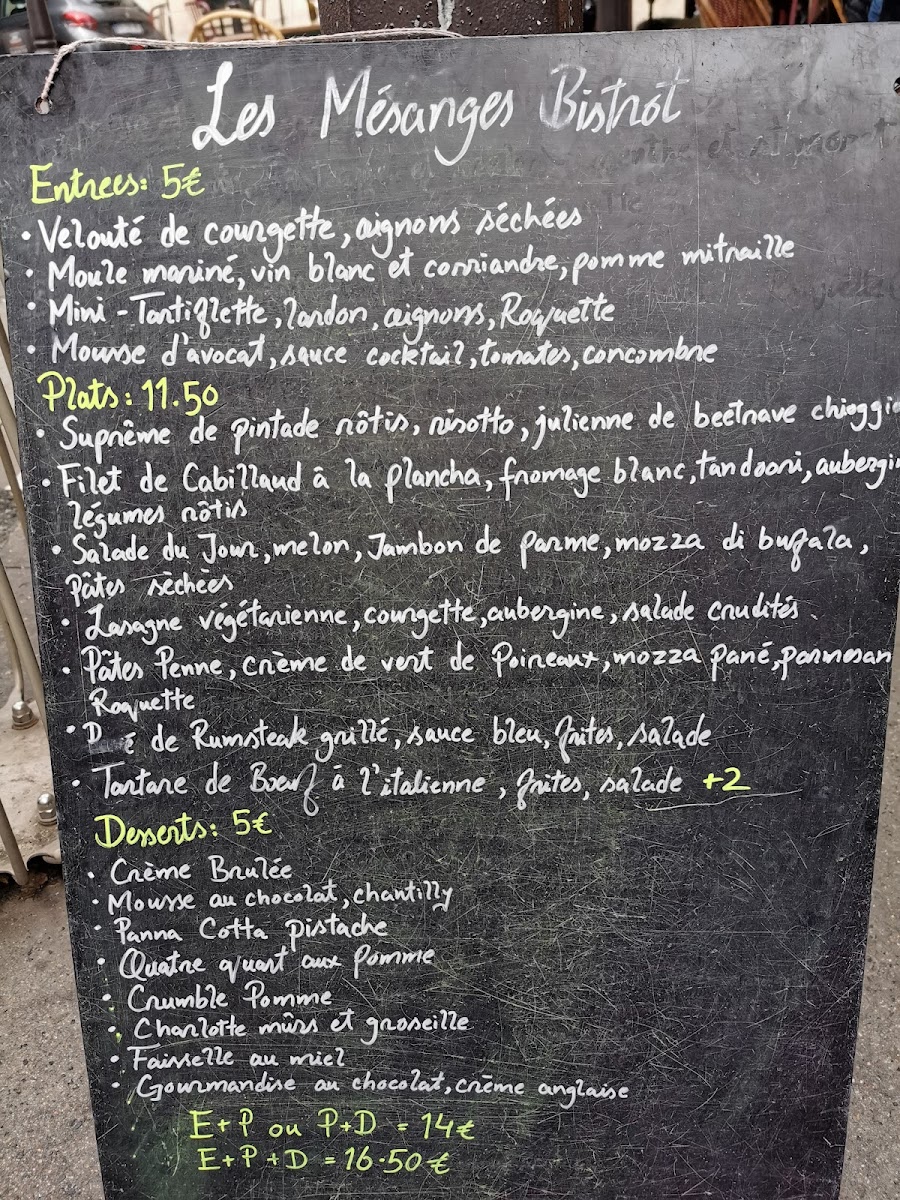 Les Mésanges Bistrot
Entrees: 5€
• Velouté de courgette, oignons séchées
• Moule mariné, vin blanc et corriandre, pomme mitraille
• Mini - Tartiflette, lardon, oignons, Roquette
• Mousse d'avocat, sauce cocktail, tomates, concombre
Plats: 11.50
• Suprême de pintade rôtis, risotto, julienne de beetrave chioggia
• Filet de Cabillaud à la plancha, fromage blanc, tandoori, aubergin
légumes rôtis
• Salade du Jour, melon, Jambon de parme, mozza di bufala,
Pâtes sèchèes
• Lasagne végétarienne, courgette, aubergine, salade crudités
• Pâtes Penne, crème de vert de Poireaux, mozza pané, parmesan
Roquette
• de Rumsteak grillé, sauce bleu, frites, salade
• Tartare de Bœuf à l'italienne, frites, salade +2
Desserts: 5€
• Crème Brulée
• Mousse au chocolat, chantilly
• Panna Cotta pistache
• Quatre quart aux Pomme
• Crumble Pomme
• Charlotte mûrs et groseille
• Faisselle au miel
• Gourmandise au chocolat, crème anglaise
E+P ou P+D = 14€
E+P+D = 16.50€